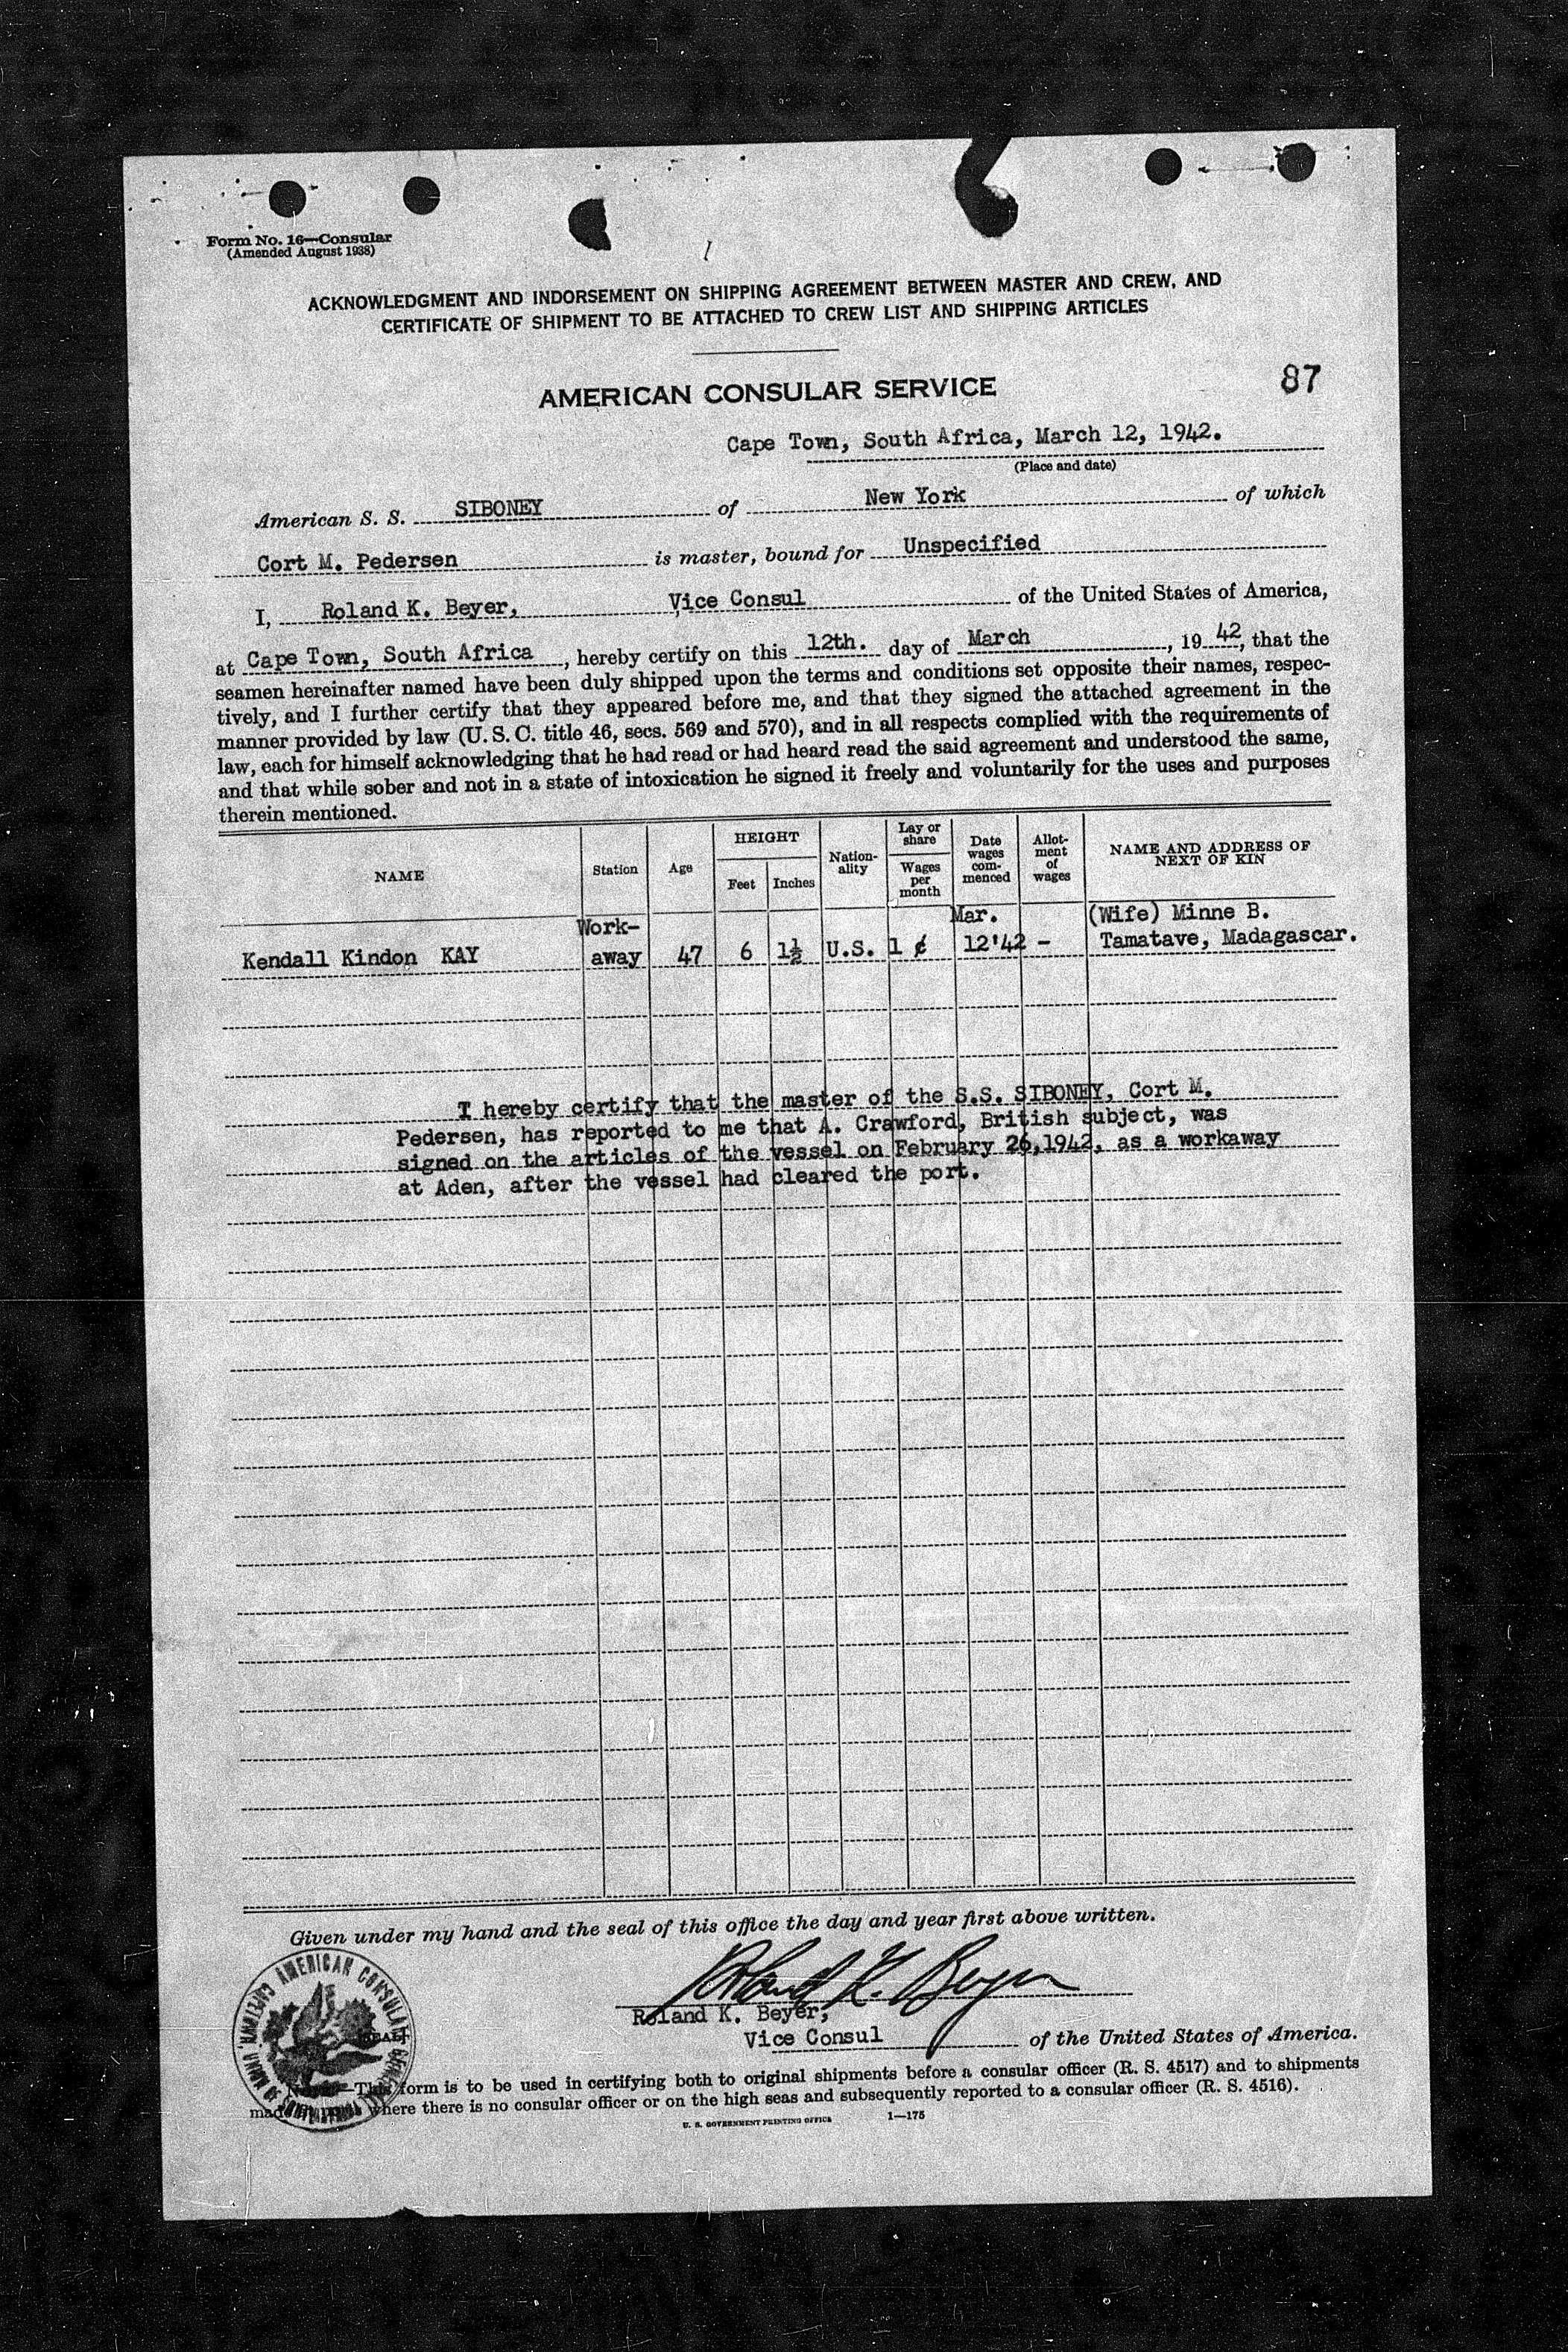 Form No. 16—Consular
(Amended August 1938)
ACKNOWLEDGMENT AND INDORSEMENT ON SHIPPING AGREEMENT BETWEEN MASTER AND CREW, AND
CERTIFICATE OF SHIPMENT TO BE ATTACHED TO CREW LIST AND SHIPPING ARTICLES
AMERICAN CONSULAR SERVICE
87
Cape Town, South Africa, March 12, 1942.
(Place and date)
American S. S. SIBONEY of New York of which
Cort M. Pedersen is master, bound for Unspecified
I, Roland K. Beyer, Vice Consul of the United States of America,
at Cape Town, South Africa, hereby certify on this 12th. day of March, 1942, that the
seamen hereinafter named have been duly shipped upon the terms and conditions set opposite their names, respec-
tively, and I further certify that they appeared before me, and that they signed the attached agreement in the
manner provided by law (U. S. C. title 46, secs. 569 and 570), and in all respects complied with the requirements of
law, each for himself acknowledging that he had read or had heard read the said agreement and understood the same,
and that while sober and not in a state of intoxication he signed it freely and voluntarily for the uses and purposes
therein mentioned.
NAME
Station
Age
HEIGHT
Feet
Inches
Nation-
ality
Lay or
share
Wages
per
month
Date
wages
com-
menced
Allot-
ment
of
wages
NAME AND ADDRESS OF
NEXT OF KIN
Work- Mar. (Wife) Minne B.
Kendall Kindon KAY away 47 6 1½ U.S. 1 ¢ 12'42 - Tamatave, Madagascar.
I hereby certify that the master of the S.S. SIBONEY, Cort M.
Pedersen, has reported to me that A. Crawford, British subject, was
signed on the articles of the vessel on February 26,1942, as a workaway
at Aden, after the vessel had cleared the port.
Given under my hand and the seal of this office the day and year first above written.
Roland K. Beyer
Roland K. Beyer,
Vice Consul of the United States of America.
AMERICAN CONSULATE
This form is to be used in certifying both to original shipments before a consular officer (R. S. 4517) and to shipments
where there is no consular officer or on the high seas and subsequently reported to a consular officer (R. S. 4516).
U. S. GOVERNMENT PRINTING OFFICE 1—175